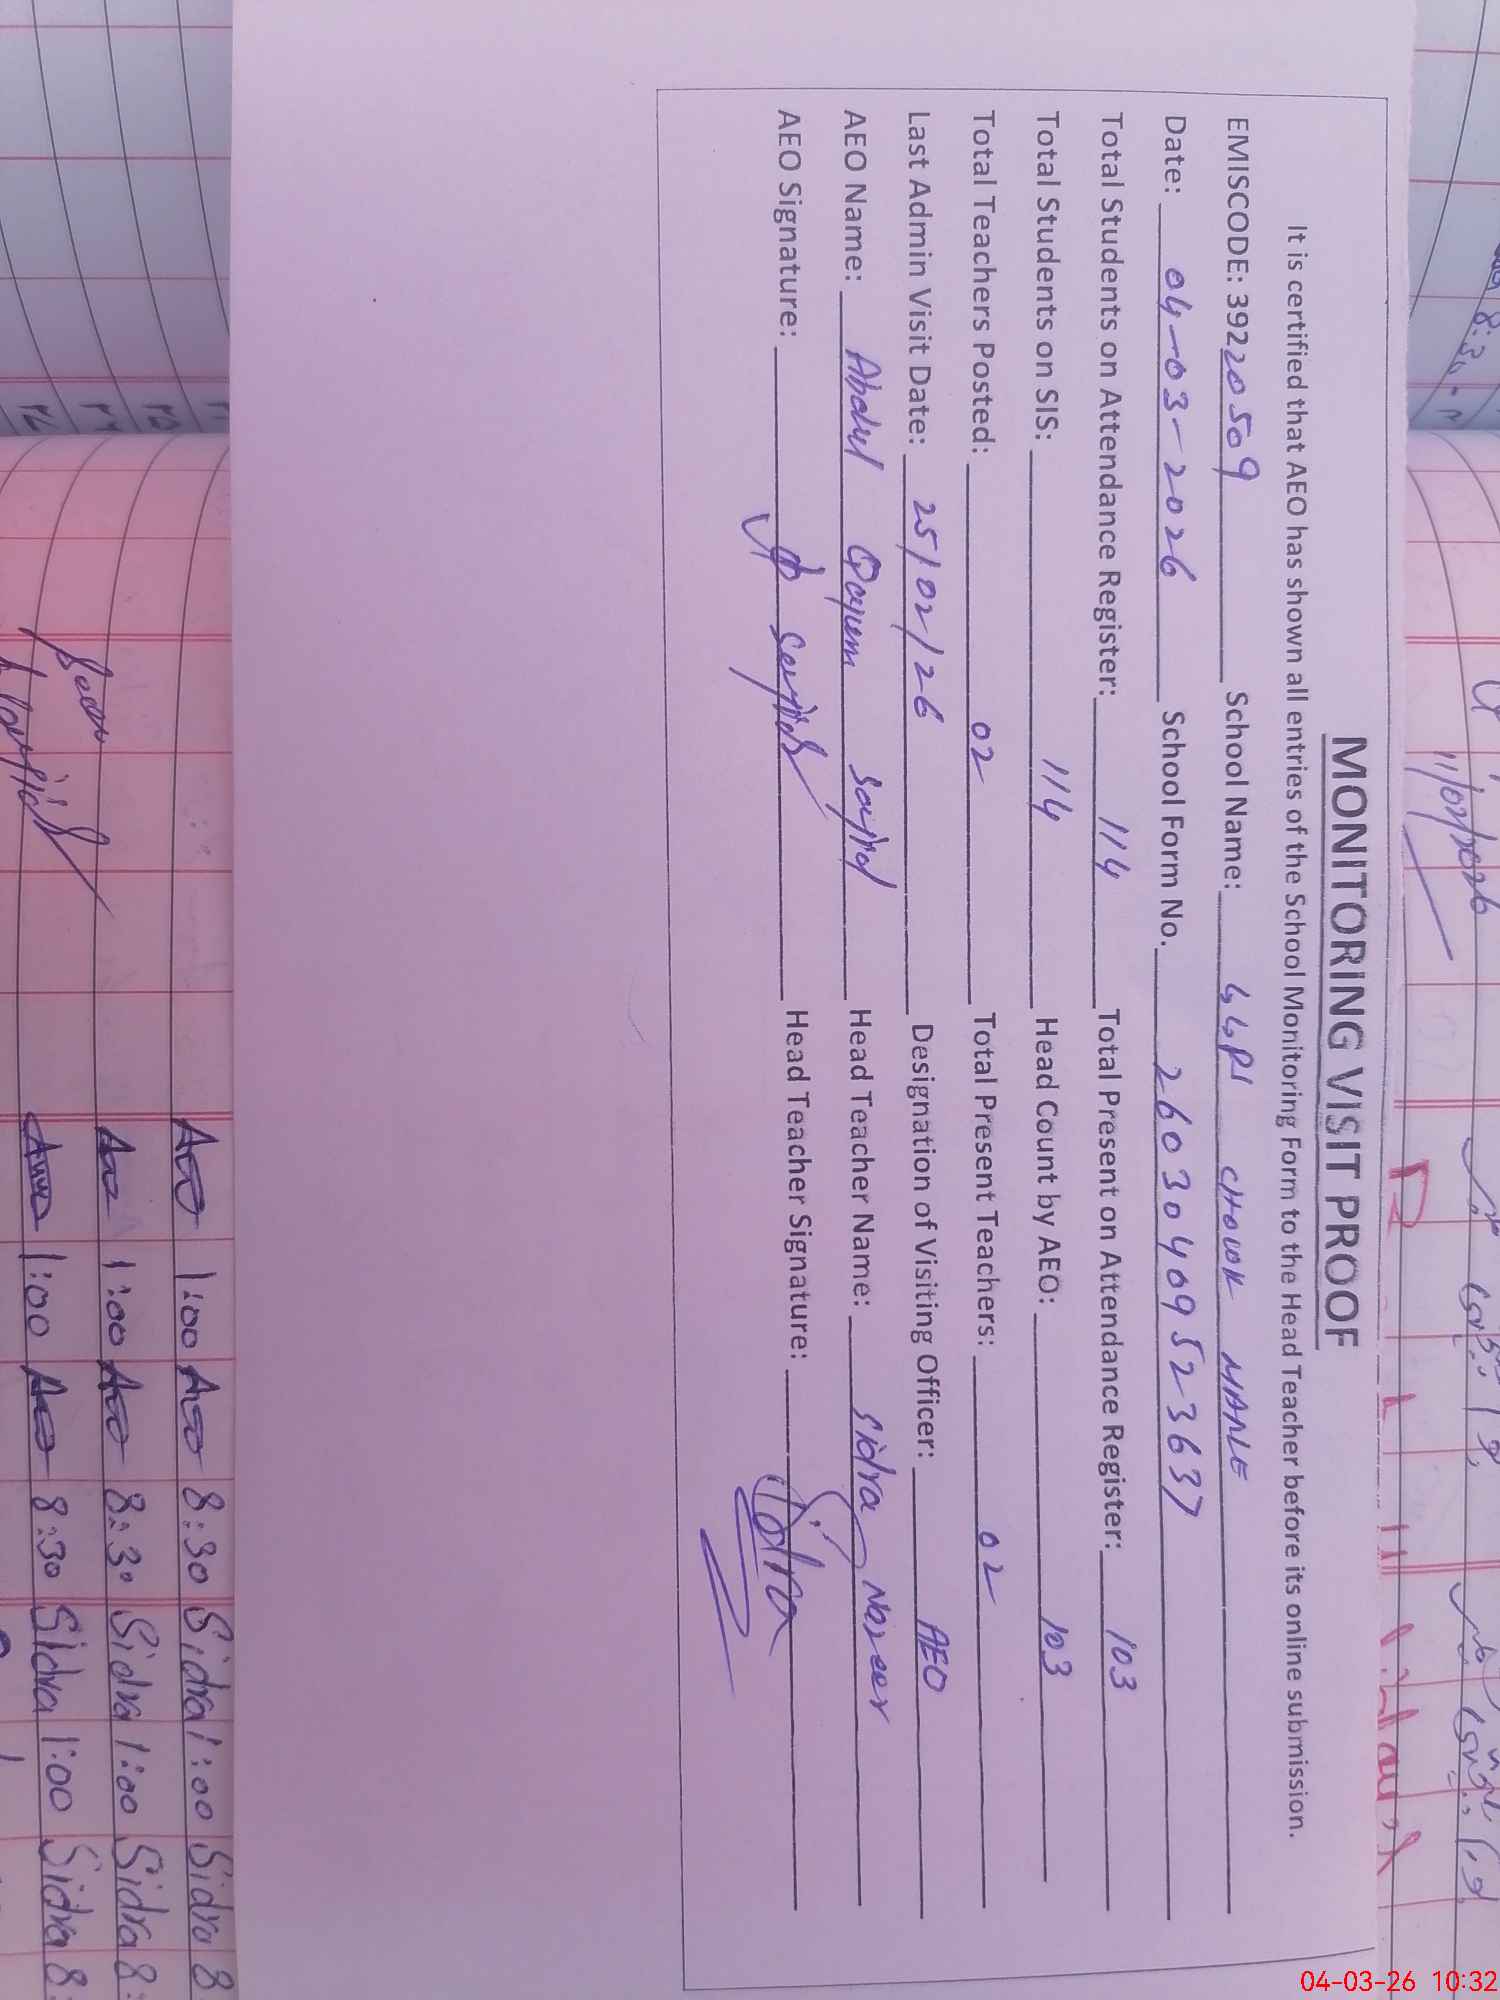 MONITORING VISIT PROOF
It is certified that AEO has shown all entries of the School Monitoring Form to the Head Teacher before its online submission.
EMISCODE: 39220509 School Name: GGPS CHOWK MAHLE
Date: 04-03-2026 School Form No. 26030409523637
Total Students on Attendance Register: 114 Total Present on Attendance Register: 103
Total Students on SIS: 114 Head Count by AEO: 103
Total Teachers Posted: 02 Total Present Teachers: 02
Last Admin Visit Date: 25/02/26 Designation of Visiting Officer: AEO
AEO Name: Abdul Qayum Sajid Head Teacher Name: Sidra Nazeer
AEO Signature: Head Teacher Signature: Sidra
11/02/2026
8:30
1:00 8:30 Sidra 1:00 Sidra 8
1:00 8:30 Sidra 1:00 Sidra 8:
1:00 8:30 Sidra 1:00 Sidra 8:
04-03-26 10:32